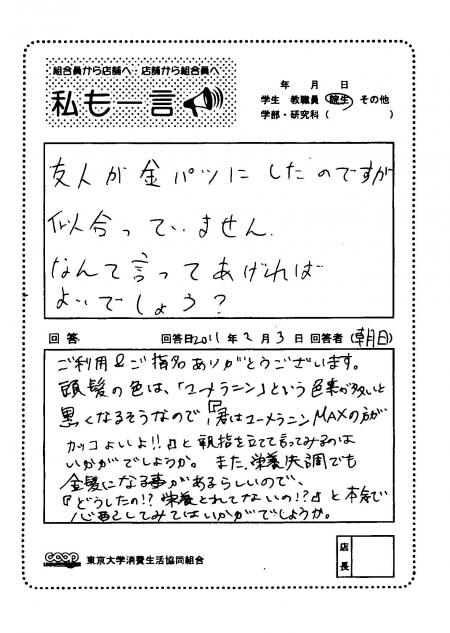 組合員から店舗へ・店舗から組合員へ
私も一言
年 月 日
学生 教職員 院生 その他
学部・研究科( )
友人が金パツにしたのですが
似合っていません.
なんて言ってあげれば
よいでしょう?
回答 回答日2011年2月3日 回答者(朝日)
ご利用&ご指名ありがとうございます。
頭髪の色は、「ユーメラニン」という色素が多いと
黒くなるそうなので『君はユーメラニンMAXの方が
カッコよいよ!!』と親指を立てて言ってみるのは
いかがでしょうか。また、栄養失調でも
金髪になる事があるらしいので、
『どうしたの!?栄養とれてないの!?』と本気で
心配してみてはいかがでしょうか。
coop 東京大学消費生活協同組合
店長